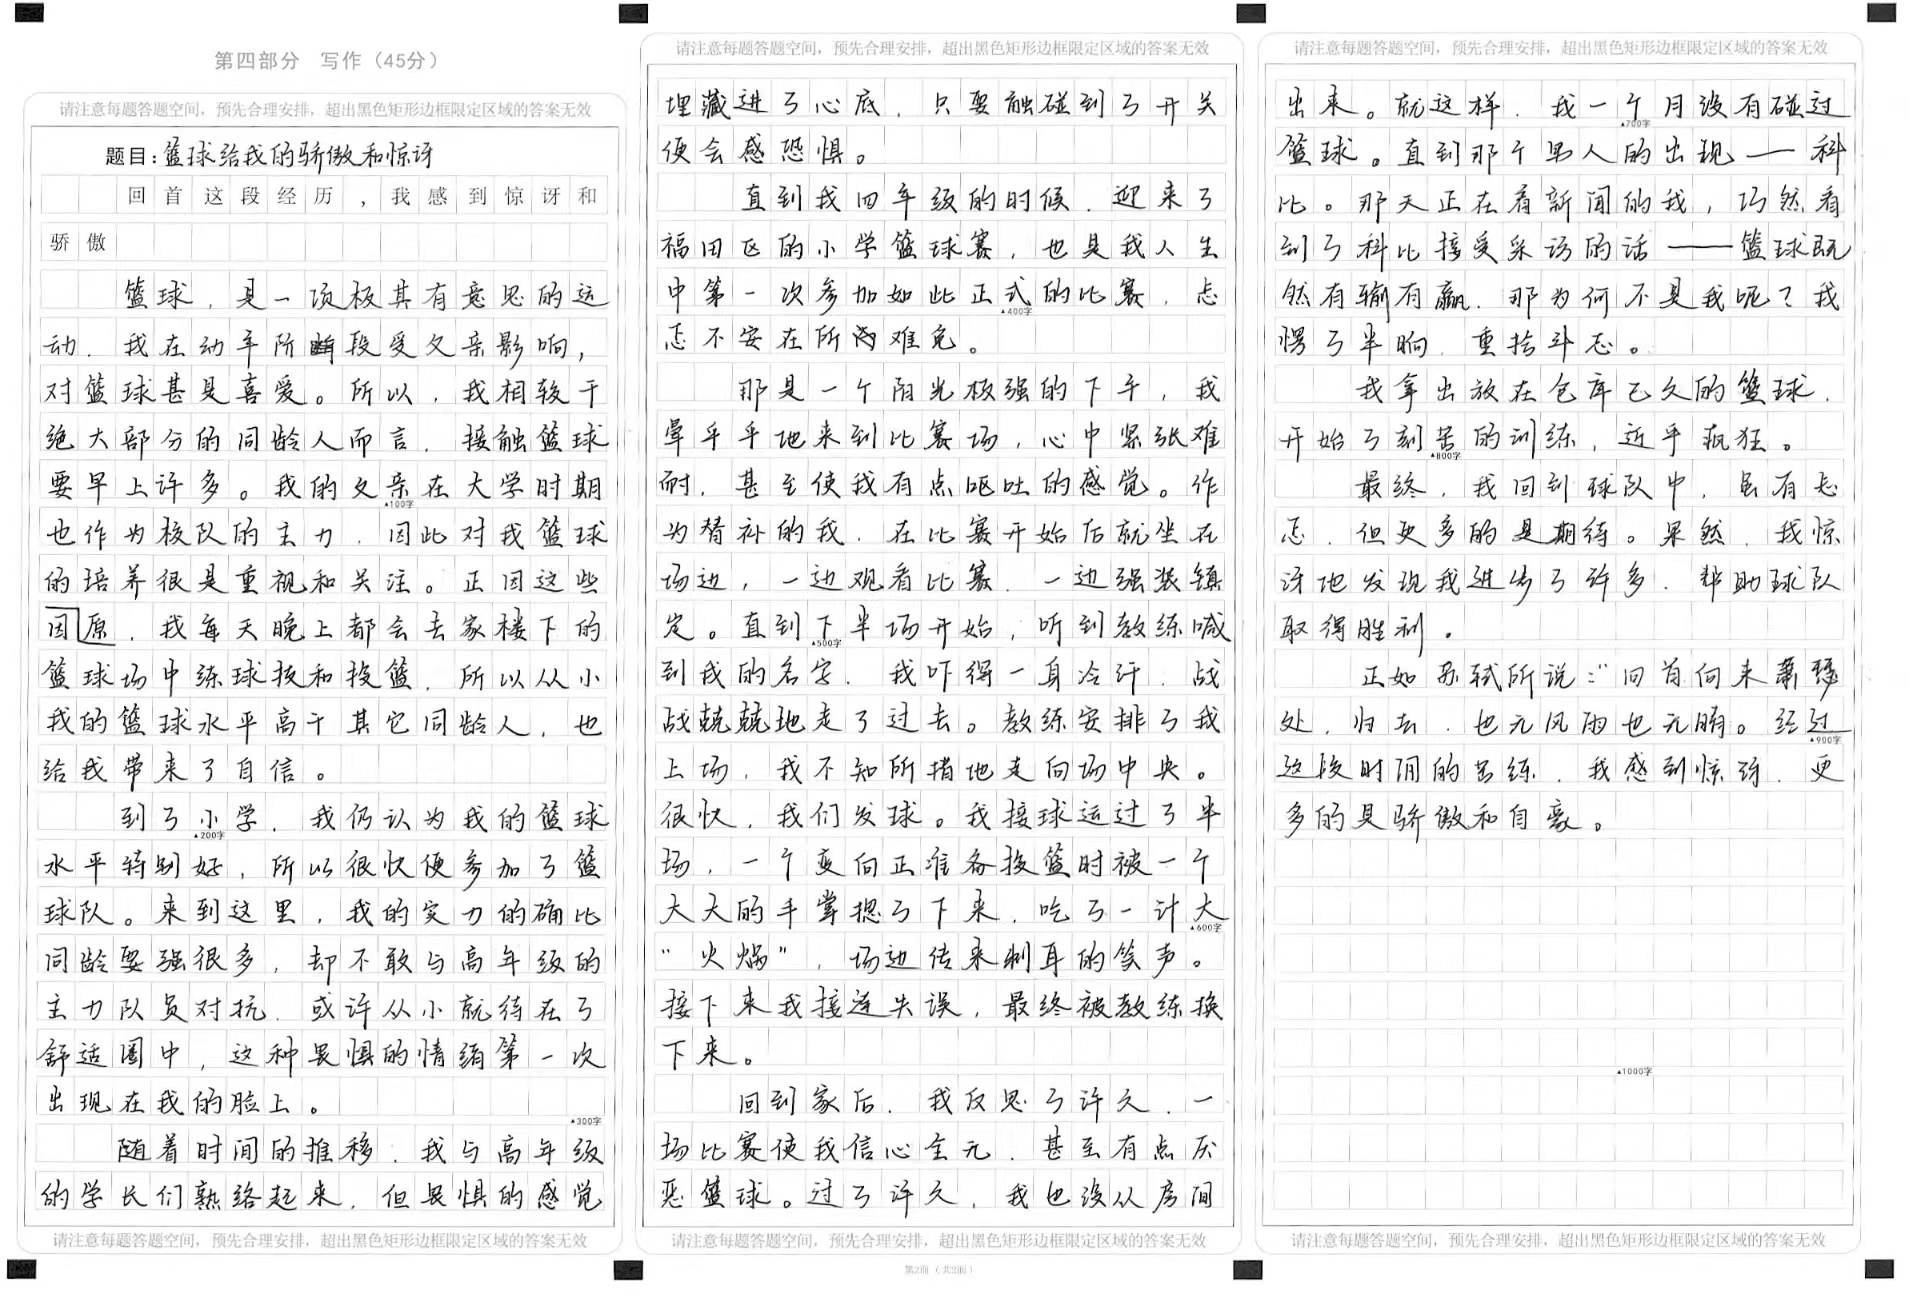 第四部分 写作（45分）
请注意每题答题空间，预先合理安排，超出黑色矩形边框限定区域的答案无效
题目：篮球给我的骄傲和惊讶
回首这段经历，我感到惊讶和
骄傲
篮球，是一项极其有意思的运
动．我在幼年阶段受父亲影响，
对篮球甚是喜爱。所以，我相较于
绝大部分的同龄人而言．接触篮球
要早上许多。我的父亲在大学时期
▲100字
也作为校队的主力．因此对我篮球
的培养很是重视和关注。正因这些
因原．我每天晚上都会去家楼下的
篮球场中练球技和投篮．所以从小
我的篮球水平高于其它同龄人，也
给我带来了自信。
到了小学．我仍认为我的篮球
▲200字
水平特别好，所以很快便参加了篮
球队。来到这里，我的实力的确比
同龄要强很多，却不敢与高年级的
主力队员对抗．或许从小就待在了
舒适圈中，这种畏惧的情绪第一次
出现在我的脸上。
▲300字
随着时间的推移．我与高年级
的学长们熟络起来，但畏惧的感觉
请注意每题答题空间，预先合理安排，超出黑色矩形边框限定区域的答案无效
请注意每题答题空间，预先合理安排，超出黑色矩形边框限定区域的答案无效
埋藏进了心底．只要触碰到了开关
便会感恐惧。
直到我四年级的时候．迎来了
福田区的小学篮球赛，也是我人生
中第一次参加如此正式的比赛．忐
▲400字
忑不安在所难免。
那是一个阳光极强的下午，我
晕乎乎地来到比赛场，心中紧张难
耐．甚至使我有点呕吐的感觉。作
为替补的我．在比赛开始后就坐在
场边，一边观看比赛．一边强装镇
定。直到下半场开始，听到教练喊
▲500字
到我的名字．我吓得一身冷汗．战
战兢兢地走了过去。教练安排了我
上场，我不知所措地走向场中央。
很快，我们发球。我接球运过了半
场．一个变向正准备投篮时被一个
大大的手掌摁了下来．吃了一计大
▲600字
“火焰”，场边传来刺耳的笑声。
接下来我接连失误，最终被教练换
下来。
回到家后．我反思了许久．一
场比赛使我信心全无．甚至有点厌
恶篮球。过了许久，我也没从房间
请注意每题答题空间，预先合理安排，超出黑色矩形边框限定区域的答案无效
第2面（共2面）
请注意每题答题空间，预先合理安排，超出黑色矩形边框限定区域的答案无效
出来。就这样．我一个月没有碰过
▲700字
篮球。直到那个男人的出现——科
比。那天正在看新闻的我，巧然看
到了科比接受采访的话——篮球既
然有输有赢．那为何不是我呢？我
愣了半晌．重拾斗志。
我拿出放在仓库已久的篮球．
开始了刻苦的训练，近乎疯狂。
▲800字
最终，我回到球队中．虽有忐
忑．但更多的是期待。果然．我惊
讶地发现我进步了许多．帮助球队
取得胜利。
正如苏轼所说：“回首向来萧瑟
处．归去．也无风雨也无晴。经过
▲900字
这段时间的苦练．我感到惊讶．更
多的是骄傲和自豪。
▲1000字
请注意每题答题空间，预先合理安排，超出黑色矩形边框限定区域的答案无效